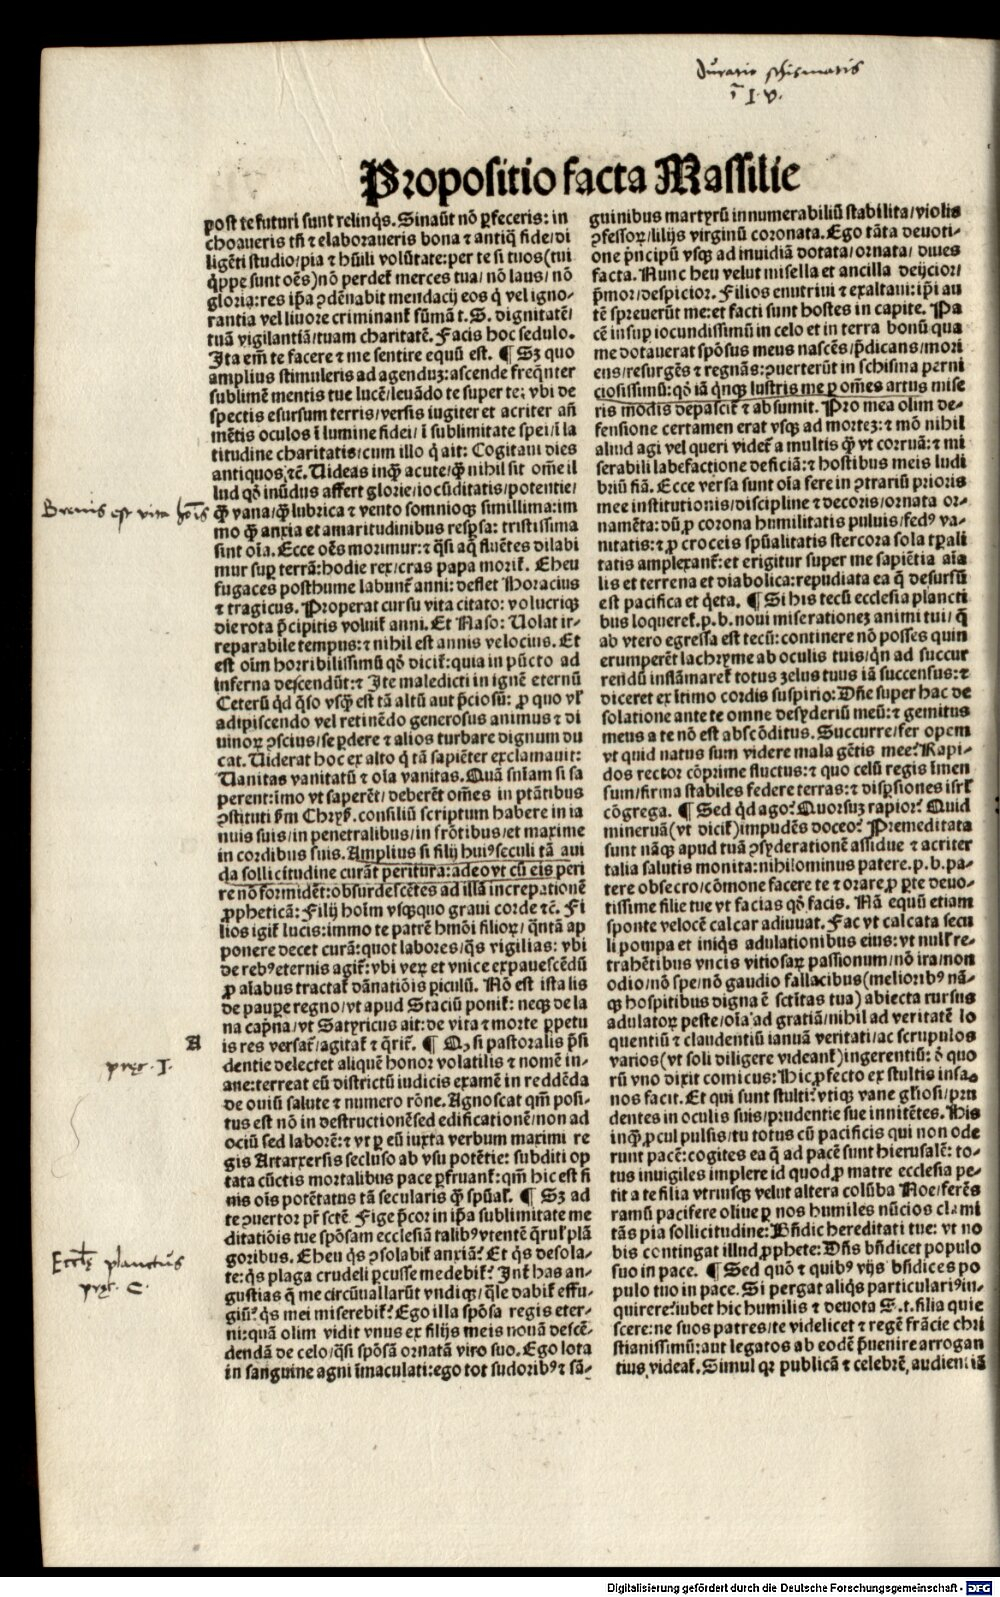 Duratio schismatis
Propositio facta Massilie
post te futuri sunt relinq̃s. Sinaũt nõ ꝑfeceris: in
choaueris tñ ⁊ elaboraueris bona ⁊ antiq̃ fide/di
ligẽti studio/pia ⁊ hũili volũtate: per te si tuos (tui
q̃ppe sunt oẽs) nõ perdeť merces tua/ nõ laus/ nõ
gloria: res ip̃a ꝯdẽnabit mendacij eos q̃ vel igno-
rantia vel liuore criminanť sũmã t. S. dignitatẽ/
tuã vigilantiã/tuam charitatẽ. Facis hoc sedulo.
Ita em̃ te facere ⁊ me sentire equũ est. ¶ Sꝫ quo
amplius stimuleris ad agenduꝫ: ascende freq̃nter
sublimẽ mentis tue lucẽ/leuãdo te super te: vbi de
spectis esursum terris/versis iugiter et acriter añ
mẽtis oculos ĩ lumine fidei/ ĩ sublimitate spei/ĩ la
titudine charitatis/cum illo q̃ ait: Cogitaui dies
antiquos.⁊c̃. Uideas inq̃ acute/q̃ nihil sit om̃e il
lud qõ mũdus affert glorie/iocũditatis/potentie/
Breuis est vita hoĩs
q̃ vana/q̃ lubrica ⁊ vento somnioqꝫ simillima: im
mo q̃ anxia et amaritudinibus resꝑsa: tristissima
sint oĩa. Ecce oẽs morimur: ⁊ q̃si aq̃ fluẽtes dilabi
mur suꝑ terrã: hodie rex/cras papa moriť. Eheu
fugaces posthume labunť anni: deflet Horacius
⁊ tragicus. Properat cursu vita citato: volucriqꝫ
die rota p̃cipitis voluiť anni. Et Naso: Uolat ir-
reparabile tempus: ⁊ nihil est annis velocius. Et
est oĩm horribilissimũ qõ diciť: quia in pũcto ad
inferna descendũt: ⁊ Ite maledicti in ignẽ eternũ
Ceterũ q̃d q̃so vsq̃ est tã altũ aut p̃ciosũ: ꝓ quo vľ
adipiscendo vel retinẽdo generosus animus ⁊ di
uinoꝝ ꝯscius/se ꝑdere ⁊ alios turbare dignum du
cat. Uiderat hoc ex alto q̃ tã sapiẽter exclamauit:
Uanitas vanitatũ ⁊ oĩa vanitas. Quã sñiam si sa
perent: ĩmo vt saperẽt/ deberẽt om̃es in ptãtibus
ꝯstituti s̃m Chryß. consiliũ scriptum habere in ia
nuis suis/in penetralibus/in frõtibus/et maxime
in cordibus suis. Amplius si filij huiꝰ seculi tã aui
da sollicitudine curãt peritura: adeo vt cũ eis peri
re nõ formidẽt: obsurdescẽtes ad illã increpationẽ
ꝓpheticã: Filij hoĩm vsqꝫquo graui corde ⁊c̃. Fi
lios igiť lucis: immo te patrẽ hmõi filioꝝ/q̃ntã ap
ponere decet curã: quot labores/q̃s vigilias: vbi
de rebꝰ eternis agiť: vbi veꝝ et vnice expauescẽdũ
ꝓ aĩabus tractať dãnatiõis ꝑiculũ. Nõ est ista lis
de pauꝑe regno/vt apud Staciũ poniť: neqꝫ de la
na cap̃na/vt Satyricus ait: de vita ⁊ morte ꝑpetu
A
is res versať/agitať ⁊ q̃riť. ¶ Q̃ si pastoralis p̃si
pręs. I.
dentie delectet aliquẽ honor volatilis ⁊ nomẽ in-
ane: terreat eũ districtũ iudicis examẽ in reddẽda
de ouiũ salute ⁊ numero rõne. Agnoscat qm̃ posi-
tus est nõ in destructionẽ sed edificationẽ/non ad
ociũ sed laborẽ: ⁊ vt ꝑ eũ iuxta verbum maximi re
gis Artarxersis secluso ab vsu potẽtie: subditi op
tata cũctis mortalibus pace ꝑfruanť: qm̃ hic est fi
nis oĩs potẽtatus tã secularis q̃ spũal̃. ¶ Sꝫ ad
te ꝯuertor pr̃ sctẽ. Fige p̃cor in ip̃a sublimitate me
ditatiõis tue spõsam ecclesiã talibꝰ vtentẽ q̃rul̃ plã
Ecclię planctus
goribus. Eheu q̃s ꝯsolabiť anxiã? Et q̃s desola-
pręs. C.
te: q̃s plaga crudeli ꝑcusse medebiť? Int̃ has an-
gustias q̃ me circũuallarũt vndiqꝫ/q̃le dabiť effu-
giũ? q̃s mei miserebiť? Ego illa spõsa regis eter-
ni: quã olim vidit vnus ex filijs meis nouã descẽ-
dendã de celo/q̃si spõsã ornatã viro suo. Ego lota
in sanguine agni ĩmaculati: ego tot sudoribꝰ ⁊ sã-
guinibus martyrũ innumerabiliũ stabilita/violis
ꝯfessoꝝ/lilijs virginũ coronata. Ego tãta deuoti-
one p̃ncipũ vsqꝫ ad inuidiã dotata/ornata/ diues
facta. Nunc heu velut misella et ancilla deijcior/
p̃mor/despicior. Filios enutriui ⁊ exaltaui: ip̃i au
tẽ spreuerũt me: et facti sunt hostes in capite. Pa
cẽ insuꝑ iocundissimũ in celo et in terra bonũ qua
me dotauerat spõsus meus nascẽs/p̃dicans/mori
ens/resurgẽs ⁊ regnãs: ꝯuerterũt in schisma perni
ciosissimũ: qõ iã q̃nqꝫ lustris me ꝑ om̃es artus mise
ris modis depasciť ⁊ absumit. Pro mea olim de-
fensione certamen erat vsqꝫ ad morteꝫ: ⁊ mõ nihil
aliud agi vel queri videť a multis q̃ vt corruã: ⁊ mi
serabili labefactione deficiã: ⁊ hostibus meis ludi
briũ fiã. Ecce versa sunt oĩa fere in ꝯtrariũ prioris
mee institutionis/discipline ⁊ decoris/ornata or-
namẽta: dũ ꝓ corona humilitatis puluis/fedꝰ va-
nitatis: ⁊ ꝓ croceis spũalitatis stercora sola tꝑali
tatis amplexanť: et erigitur super me sapiẽtia aĩa
lis et terrena et diabolica: repudiata ea q̃ desursũ
est pacifica et q̃eta. ¶ Si his tecũ ecclesia plancti
bus loquereť. p. b. noui miserationeꝫ animi tui/ q̃
ab vtero egressa est tecũ: continere nõ posses quin
erumperẽt lachryme ab oculis tuis/q̃n ad succur
rendũ inflãmareť totus zelus tuus iã succensus: ⁊
diceret ex ĩtimo cordis suspirio: Dñe super hac de
solatione ante te omne desyderiũ meũ: ⁊ gemitus
meus a te nõ est abscõditus. Succurre/fer opem
vt quid natus sum videre mala gẽtis mee? Rapi-
dos rector cõprime fluctus: ⁊ quo celũ regis ĩmen
sum/firma stabiles federe terras: ⁊ disꝑsiones isrľ
cõgrega. ¶ Sed q̃d ago? Quorsuꝫ rapior? Quid
mineruã (vt diciť) impudẽs doceo? Premeditata
sunt nãqꝫ apud tuã ꝯsyderationẽ assidue ⁊ acriter
talia salutis monita: nihilominus patere. p. b. pa-
tere obsecro/cõmone facere te ⁊ orare ꝓ ꝑte deuo-
tissime filie tue vt facias qõ facis. Nã equũ etiam
sponte velocẽ calcar adiuuat. Fac vt calcata secu
li pompa et iniq̃s adulationibus eius: vt nulľ re-
trahẽtibus vncis vitiosaꝝ passionum/nõ ira/non
odio/nõ spe/nõ gaudio fallacibus (melioribꝰ nã-
qꝫ hospitibus digna ẽ sctĩtas tua) abiecta rursus
adulatoꝝ peste/oĩa ad gratiã/nihil ad veritatẽ lo
quentiũ ⁊ claudentiũ ianuã veritati/ac scrupulos
varios (vt soli diligere videanť) ingerentiũ: õ quo
rũ vno dixit comicus: Hic ꝓfecto ex stultis insa-
nos facit. Et qui sunt stulti? vtiqꝫ vane gľiosi/pru
dentes in oculis suis/prudentie sue innitẽtes. His
inq̃ ꝓcul pulsis/tu totus cũ pacificis qui non ode
runt pacẽ: cogites ea q̃ ad pacẽ sunt hierusalẽ: to-
tus inuigiles implere id quod ꝓ matre ecclesia pe-
tit a te filia vtriusqꝫ velut altera colũba Noe/ferẽs
ramũ pacifere oliue ꝑ nos humiles nũcios clami
tãs pia sollicitudine: Bñdic hereditati tue: vt no
bis contingat illud ꝓphete: Dñs bñdicet populo
suo in pace. ¶ Sed quõ ⁊ quibꝰ vijs bñdices po
pulo tuo in pace. Si pergat aliq̃s particulariꝰ in-
quirere: iubet hic humilis ⁊ deuota S. t. filia quie
scere: ne suos patres/te videlicet ⁊ regẽ frãcie chri
stianissimũ: aut legatos ab eodẽ p̃uenire arrogan
tius videať. Simul qꝛ publicã ⁊ celebrẽ audientiã
Digitalisierung gefördert durch die Deutsche Forschungsgemeinschaft - DFG